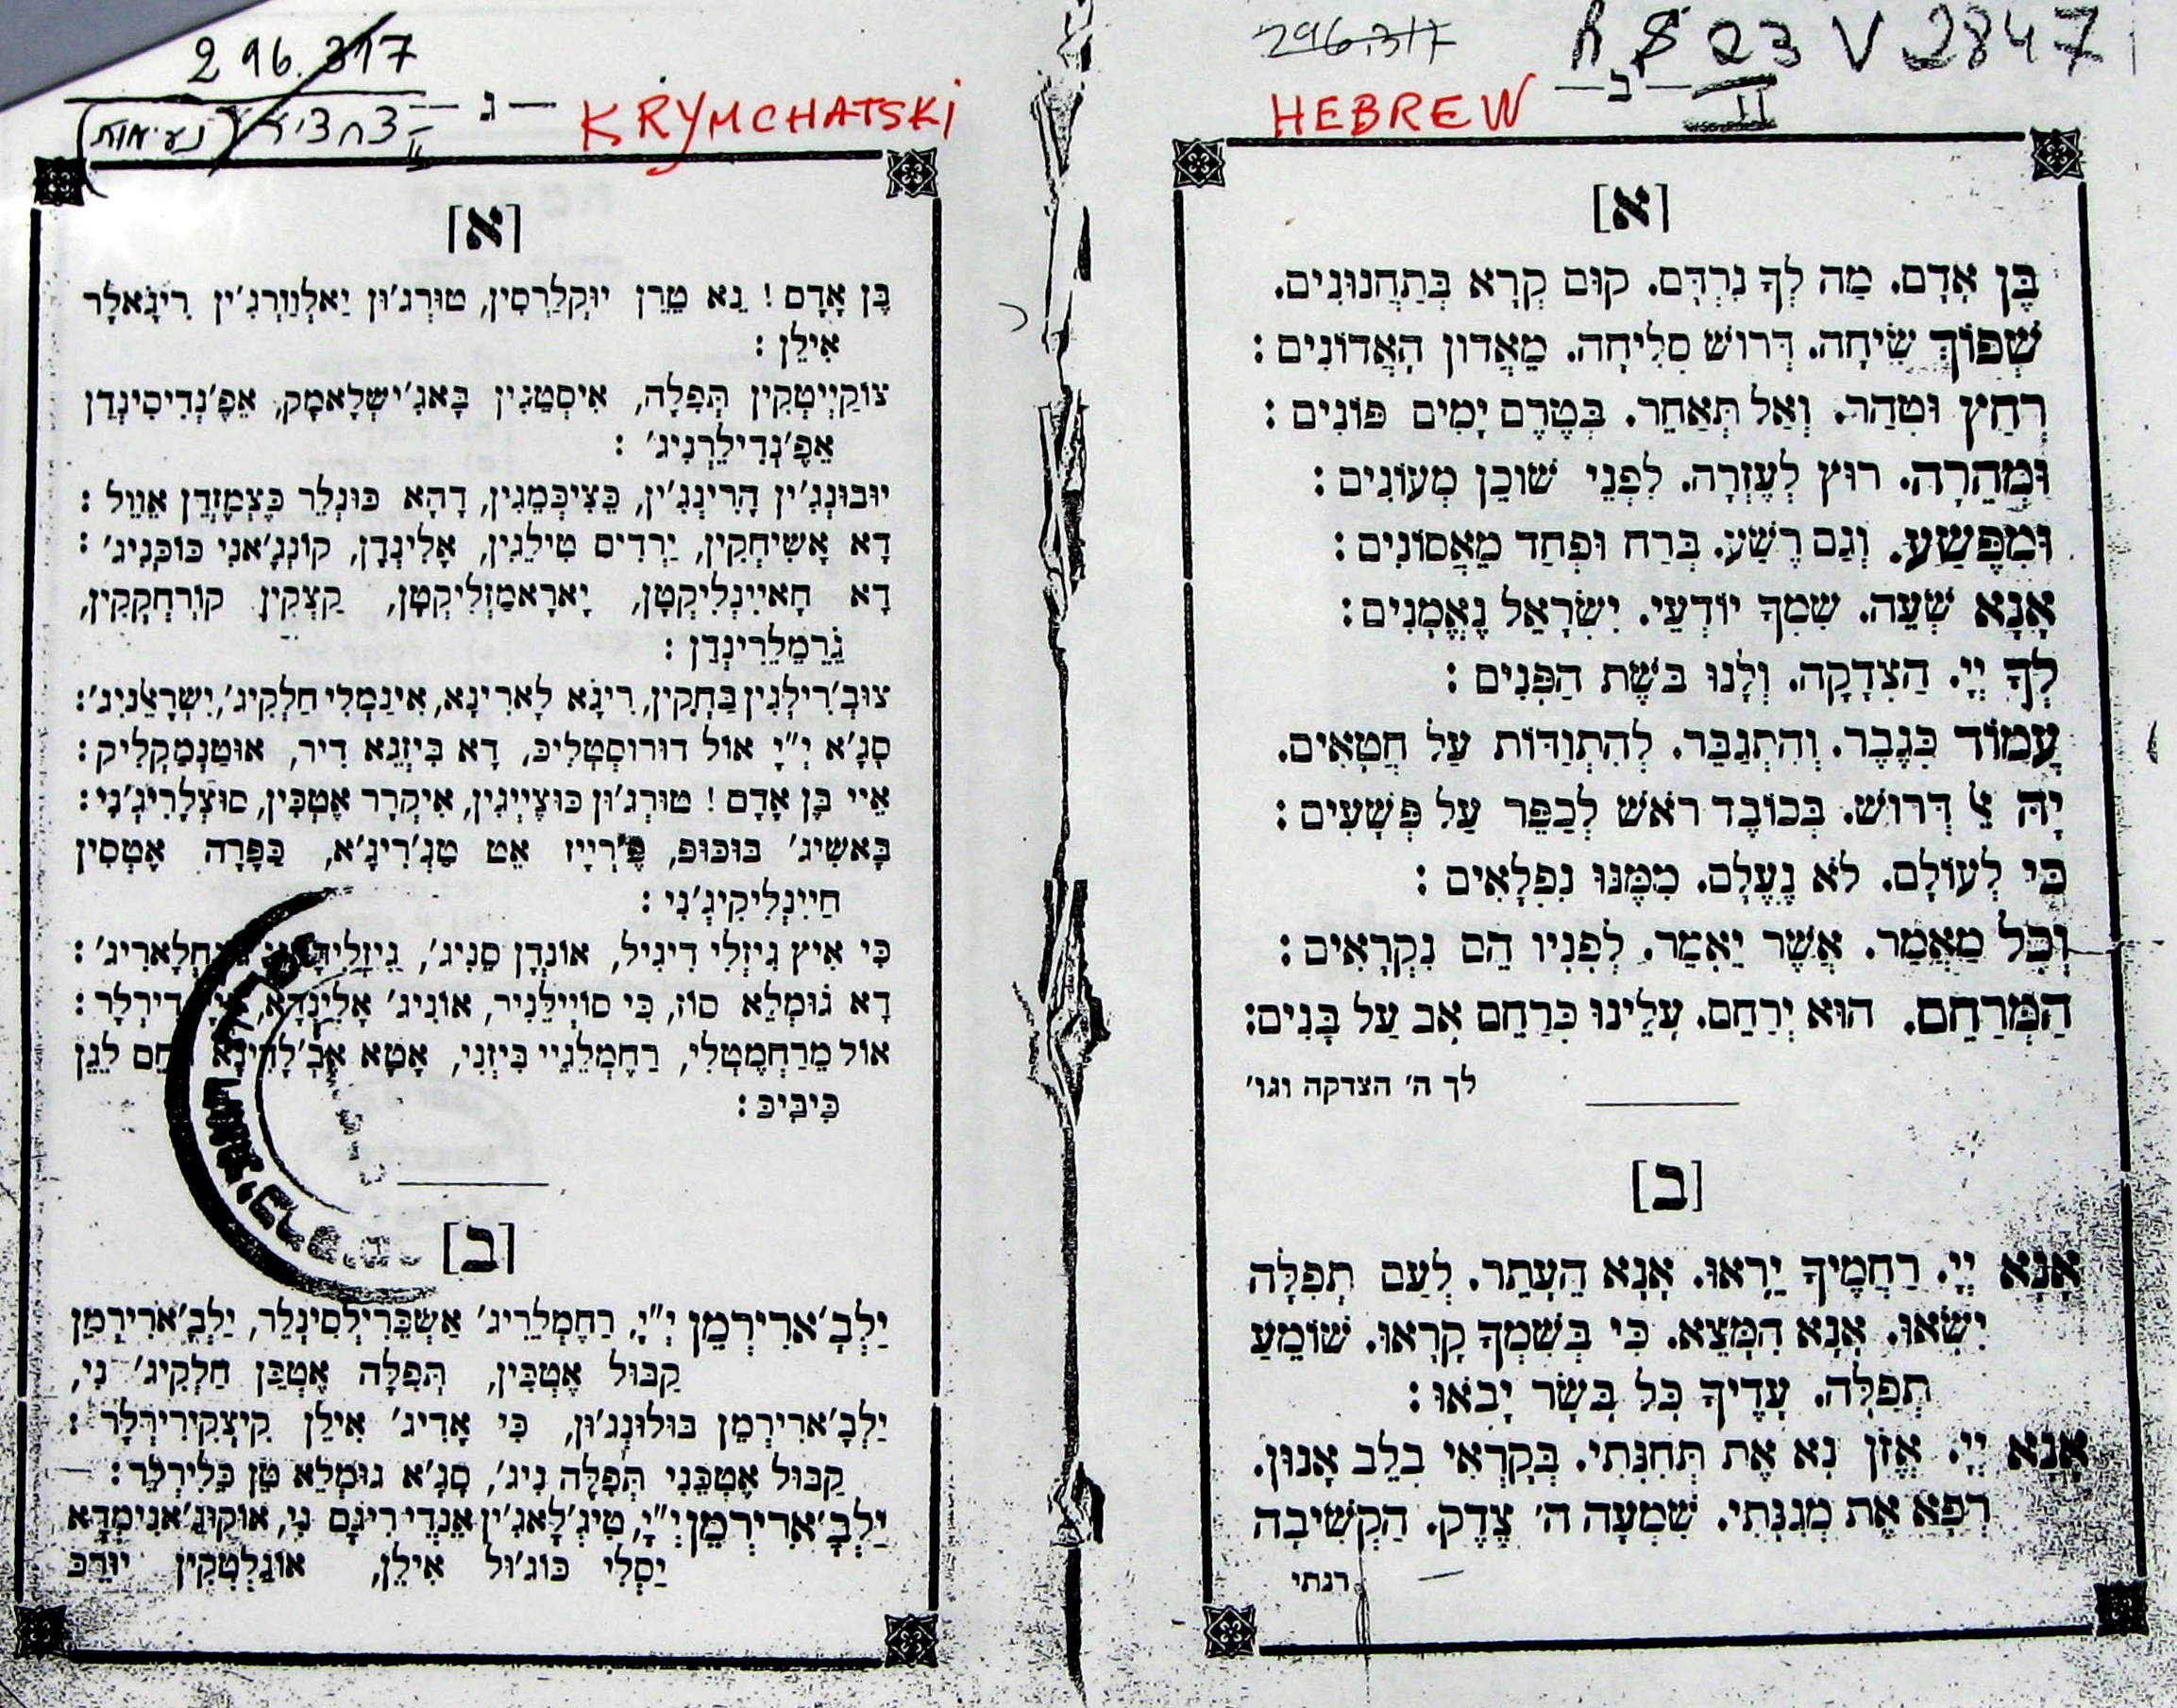 296.317
R $ 23 V 2847
HEBREW
—ב—
II
[א]
בֶּן אָדָם. מַה לְּךָ נִרְדָּם. קוּם קְרָא בְּתַחֲנוּנִים.
שְׁפוֹךְ שִׂיחָה. דְּרוֹשׁ סְלִיחָה. מֵאֲדוֹן הָאֲדוֹנִים :
רְחַץ וּטְהַר. וְאַל תְּאַחַר. בְּטֶרֶם יָמִים פּוֹנִים :
וּמְהֵרָה. רוּץ לְעֶזְרָה. לִפְנֵי שׁוֹכֵן מְעוֹנִים :
וּמִפֶּשַׁע. וְגַם רֶשַׁע. בְּרַח וּפְחַד מֵאֲסוֹנִים :
אָנָּא שְׁעֵה. שִׁמְךָ יוֹדְעֵי. יִשְׂרָאֵל נֶאֱמָנִים :
לְךָ יְיָ. הַצְּדָקָה. וְלָנוּ בּשֶׁת הַפָּנִים :
עֲמוֹד כְּגֶבֶר. וְהִתְגַּבֵּר. לְהִתְוַדּוֹת עַל חֲטָאִים.
יָהּ אֵל דְּרוֹשׁ. בְּכוֹבֶד רֹאשׁ לְכַפֵּר עַל פְּשָׁעִים :
כִּי לְעוֹלָם. לֹא נֶעֱלָם. מִמֶּנּוּ נִפְלָאִים :
וְכָל מַאֲמָר. אֲשֶׁר יֵאָמַר. לְפָנָיו הֵם נִקְרָאִים :
הַמְּרַחֵם. הוּא יְרַחֵם. עָלֵינוּ כְּרַחֵם אָב עַל בָּנִים :
לך ה' הצדקה וגו'
[ב]
אָנָּא יְיָ. רַחֲמֶיךָ יֵרָאוּ. אָנָּא הֵעָתֵר. לְעַם תְּפִלָּה
יִשָּׂאוּ. אָנָּא הִמָּצֵא. כִּי בְּשִׁמְךָ קָרָאוּ. שׁוֹמֵעַ
תְּפִלָּה. עָדֶיךָ כָּל בָּשָׂר יָבֹאוּ :
אָנָּא יְיָ. אֱזֹן נָא אֶת תְּחִנָּתִי. בְּקָרְאִי בְלֵב אָנוּן.
רְפָא אֶת מְגִנָּתִי. שִׁמְעָה ה' צֶדֶק. הַקְשִׁיבָה
רנתי
296.317
נעימות
—ג—
KRYMCHATSKI
[א]
בֶּן אָדָם ! נֵא טֵרֵן יוּקְלַרְסִין, טוּרְג'וּן יַאלְוַרְגִ'ין רִיגָאלָר
אִילֵן :
צוֹקַיְיטְקִין תְּפִלָּה, אִיסְטַגִין בָּאגִ'ישְלָאמָק, אֵפֶ'נְדִיסִינְדַן
אֵפֶ'נְדִילֵרְנִיג' :
יוּבוּנְגִ'ין הָרִינְגִ'ין, כֵּצִיכְּמֵגִין, דָהָא כּוּנְלֵר כֶּצְמֶזְדֵן אֵוֵול :
דָא אָשִׁיחְקִין, יַרְדִים טִילֵגִין, אָלִינְדָן, קוֹנְגָ'אנִי כּוֹכְּנִיג' :
דָא חָאיִינְלִיקְטָן, יָארָאמַזְלִיקְטָן, קַצְקִין קוֹרְחָקְקִין,
גְּרֵמֵלֵרִינְדַן :
צוּבְ'רִילְגִין בַּחְקִין, רִיגָא לָארִינָא, אִינַמְלִי חַלְקִיג', יִשְׂרָאֵלנִיג' :
סָגָ'א יְ"יָ אוֹל דוּרוּסְטְלִיכּ, דָא בִּיזְגֵא דִיר, אוּטַנְמַקְלִיק :
אֵיי בֶּן אָדָם ! טוּרְג'וּן כּוּצֶיְיגִין, אִיקְרָר אֶטְכִּין, סוּצְלָרִיגְ'נִי :
בָּאשִׁיג' בּוּכּוּפּ, פֶ'רְיָיז אֵט טַגְ'רִיגָ'א, כַּפָּרָה אֶטְסִין
חַיִינְלִיקִיגְ'נִי :
כִּי אִיץ גִיזְלִי דִיגִיל, אוֹנְדָן סֵנִיג',
דָא גוּמְלֵא סוֹז, כִּי סוֹיְילֵנִיר, אוֹנִיג' אָלִינְדָא,
אוֹל מֵרַחְמֶטְלִי, רַחְמְלֵגֵיי בִּיזְנִי, אָטָא
כִּיבִּיכּ :
[ב]
יַלְבָ'ארִירְמֵן יְ"יָ, רַחְמְלֵרִיג' אַשְׁכֵּרִילְסִינְלֵר, יַלְבָ'ארִירְמֵן
קַבּוּל אֶטְכִּין, תְּפִלָּה אֶטְכַּן חַלְקִיג' נִי,
יַלְבָ'ארִירְמֵן בּוּלוּנְג'וּן, כִּי אָדִיג' אִילֵן קִיצְקִירִירְלָר :
קַבּוּל אֶטְכֵּנִי תְּפִלָּה נִיג', סָגָ'א גוּמְלֵא טֵן כֵּלִירְלֵר :
יַלְבָ'ארִירְמֵן יְ"יָ, טִיגְ'לָאגִ'ין אֵנְדִי רִיגָם נִי, אוֹקוּגָ'אנִימְדָא
יַסְלִי כּוּג'וּל אִילֵן, אוֹגַלְטְקִין יוּרֵכּ